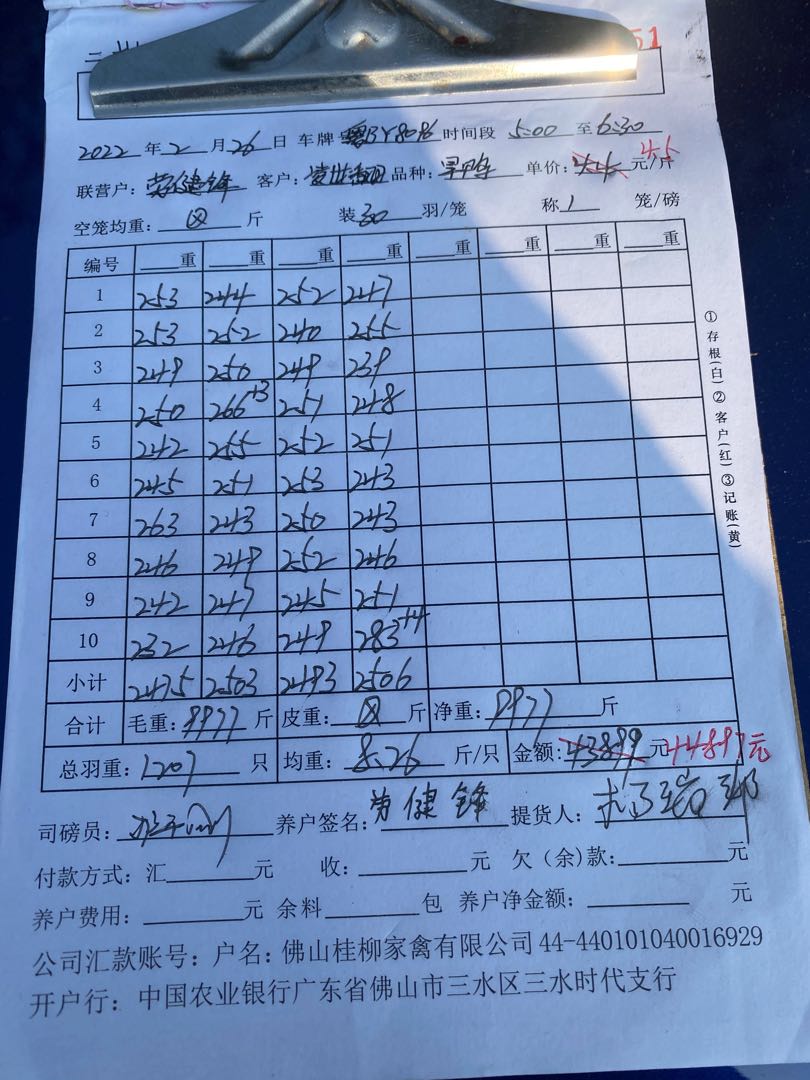 51
2022 年 2 月 26 日 车牌 粤BY8086 时间段 5:00 至 6:30
联营户: 劳健锋 客户: 品种: 旱鸭 单价: 4.4 元/斤 4.5
空笼均重: 斤 装 30 羽/笼 称 1 笼/磅
编号 重 重 重 重 重 重 重 重
1 253 244 252 247
2 253 252 240 255
3 249 250 249 239
4 250 266+3 251 248
5 242 255 252 251
6 245 251 253 243
7 263 243 250 243
8 246 249 252 246
9 242 247 245 251
10 232 246 249 283+4
小计 2475 2503 2493 2506
合计 毛重: 9977 斤 皮重: 斤 净重: 9977 斤
总羽重: 1207 只 均重: 8.26 斤/只 金额: 43899 元 44897元
司磅员: 养户签名: 劳健锋 提货人:
付款方式: 汇 元 收: 元 欠(余)款: 元
养户费用: 元 余料 包 养户净金额: 元
公司汇款账号: 户名: 佛山桂柳家禽有限公司 44-440101040016929
开户行: 中国农业银行广东省佛山市三水区三水时代支行
①存根(白)②客户(红)③记账(黄)